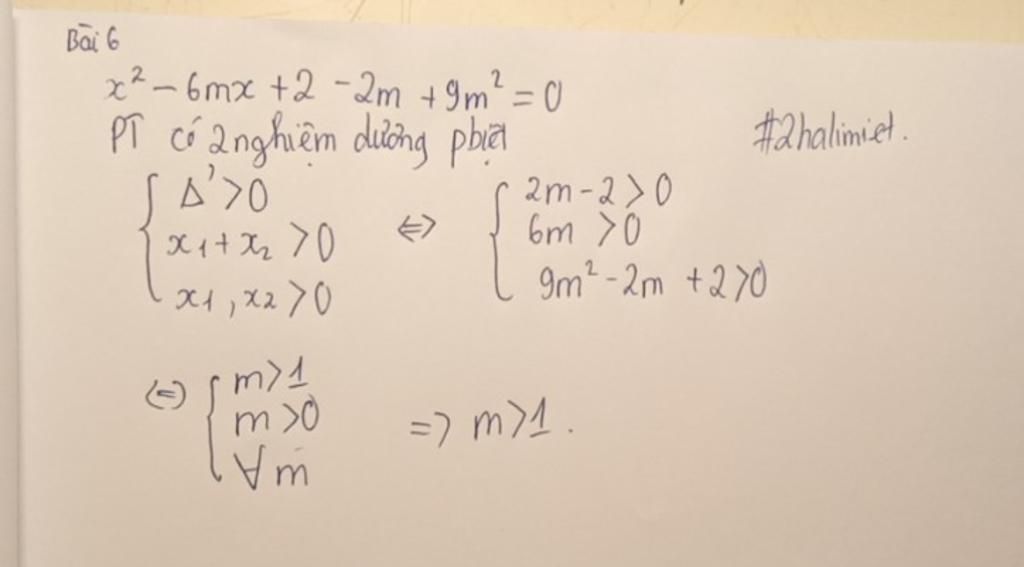 Bài 6
x² - 6mx + 2 - 2m + 9m² = 0
PT có 2 nghiệm dương pbiệt
#2halimiet.
{ Δ' > 0
x₁ + x₂ > 0
x₁, x₂ > 0
⇔ { 2m - 2 > 0
6m > 0
9m² - 2m + 2 > 0
(=) { m > 1
m > 0
∀m
=> m > 1.